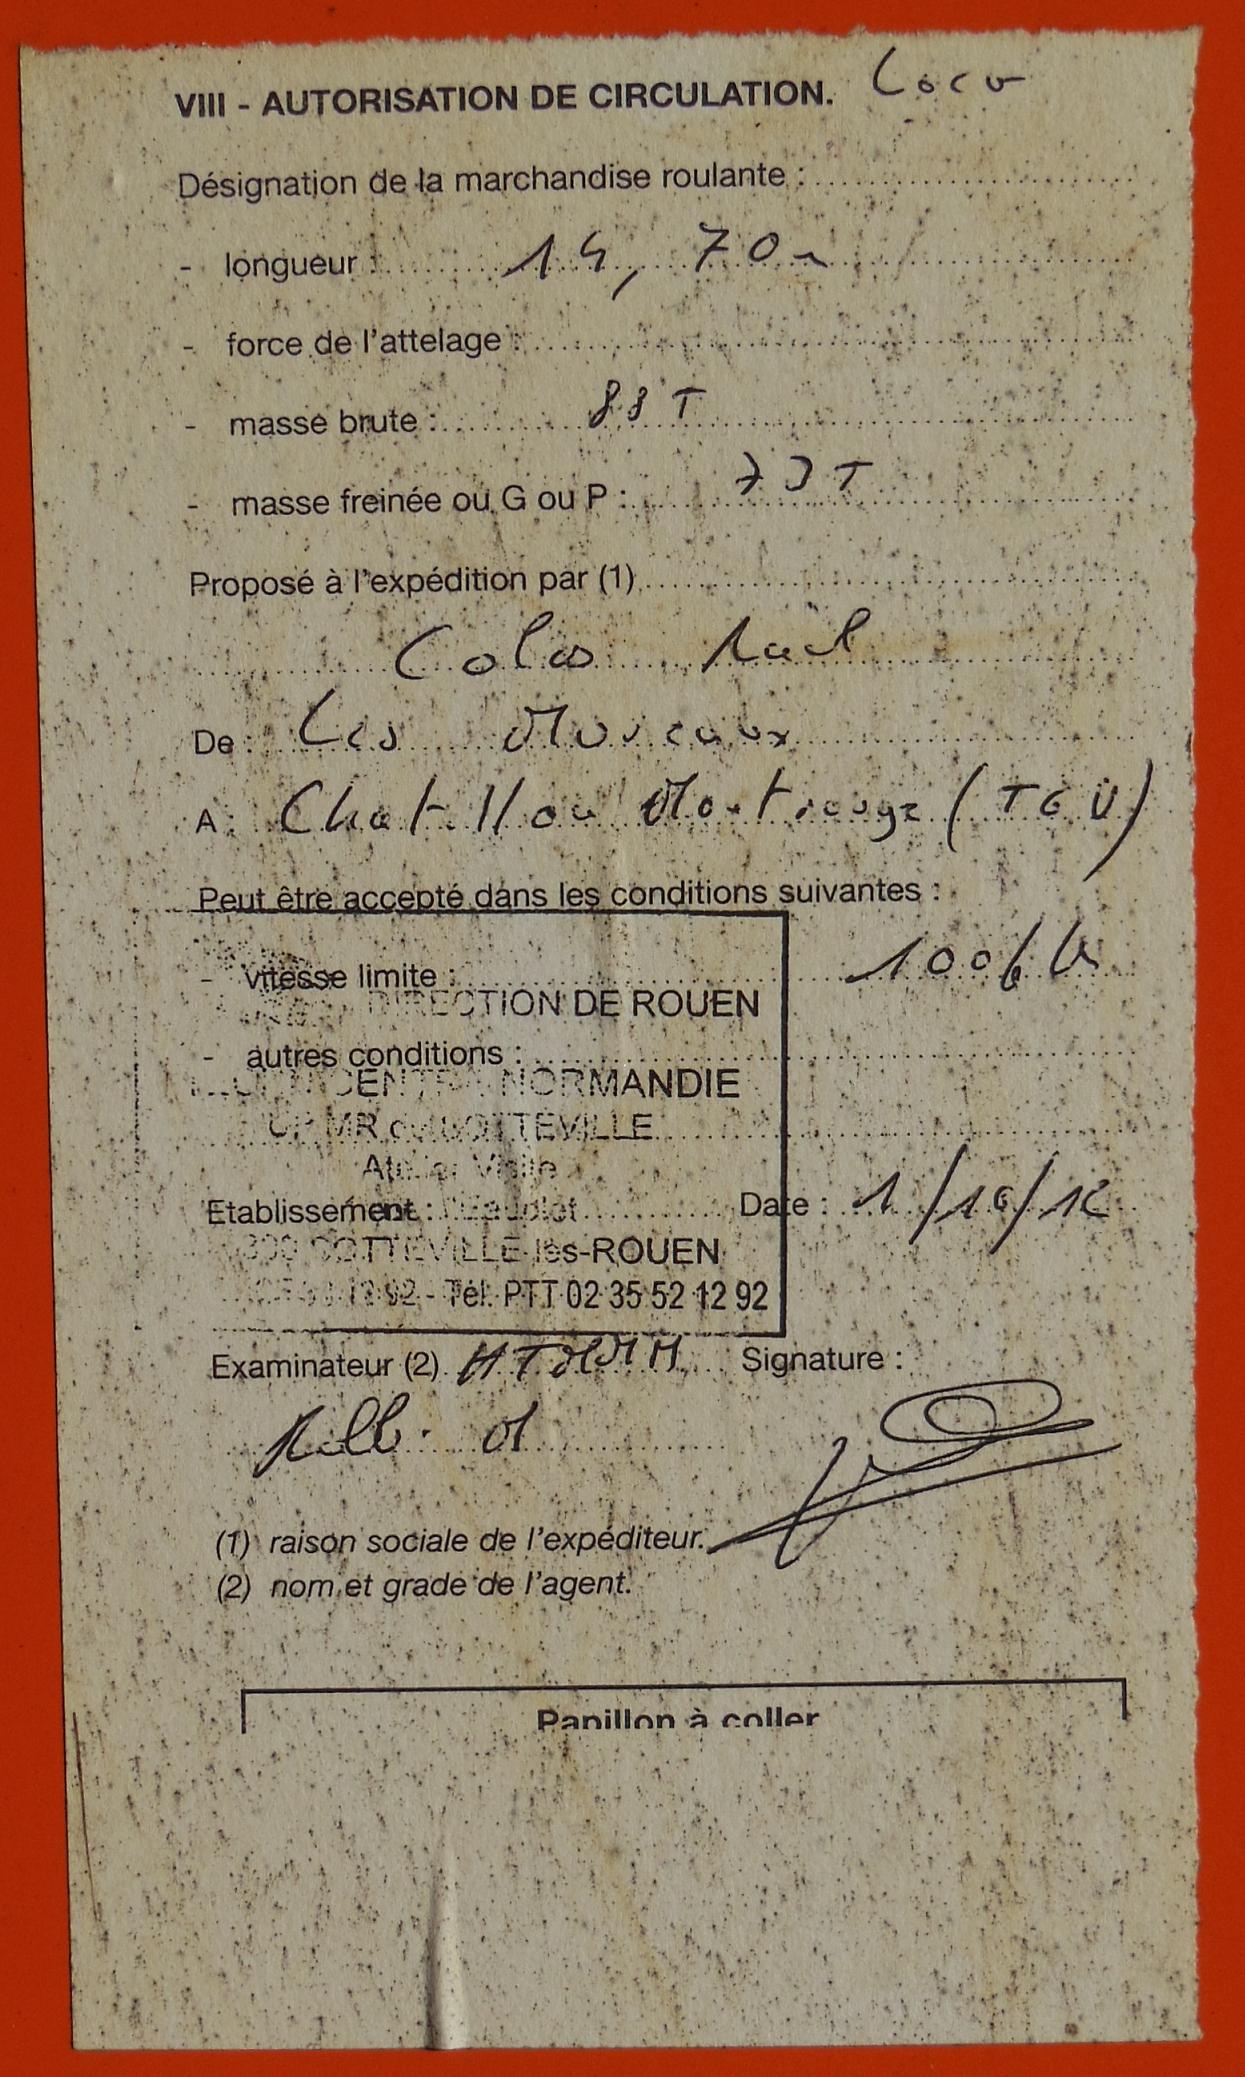 VIII - AUTORISATION DE CIRCULATION. Loco
Désignation de la marchandise roulante :
- longueur : 14, 70m
- force de l'attelage :
- masse brute : 88 T
- masse freinée ou G ou P : 73 T
Proposé à l'expédition par (1)
Colas Rail
De : Les Mureaux
A : Chatillon Montrouge (TGV)
Peut être accepté dans les conditions suivantes :
- vitesse limite : 100
DIRECTION DE ROUEN
- autres conditions :
NORMANDIE
UP MR de SOTTEVILLE
Atelier Visite
Etablissement : Date : 1/10/12
SOTTEVILLE-lès-ROUEN
Tél. PTT 02 35 52 12 92
Examinateur (2) Signature :
(1) raison sociale de l'expéditeur.
(2) nom et grade de l'agent.
Papillon à coller